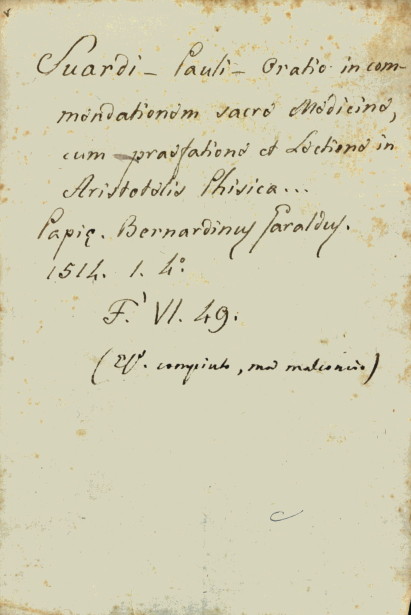 Suardi - Pauli - Oratio in com-
mendationem sacre Medicine,
cum praefatione et Lectione in
Aristotelis Phisica...
Papię. Bernardinus Garaldus.
1514. 1. 4°
F. VI. 49.
( compiuto, ma malconcio)